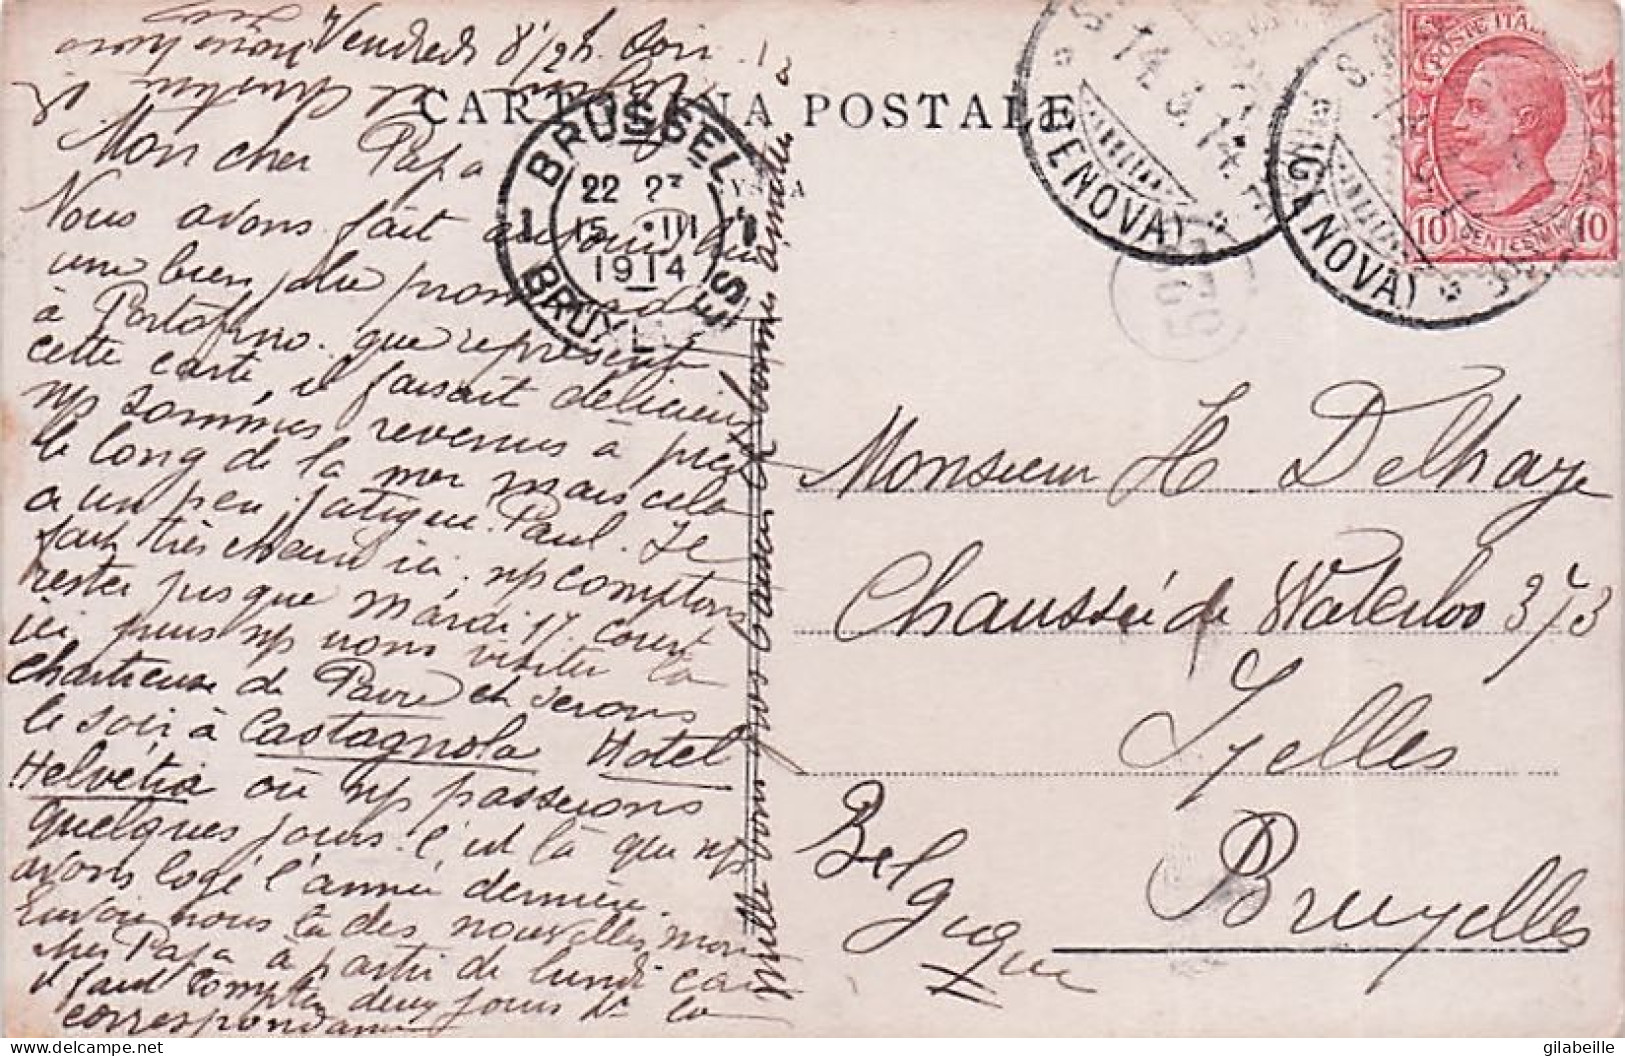 Vendredi 8 1/2 h. Soir
CARTOLINA POSTALE
Mon cher Papa
Nous avons fait aujourd'hui
une bien jolie promenade
à Portofino. que représente
cette carte, il faisait délicieux
ns sommes revenus à pied
le long de la mer mais cela
a un peu fatigué Paul. Il
fait très chaud ici. ns comptons
rester jusque mardi 17. courant
ici puis ns irons visiter la
Chartreuse de Pavie et serons
le soir à Castagnola Hotel
Helvétia où ns passerons
quelques jours. c'est là que ns
avons logé l'année dernière.
Envoie nous là des nouvelles mon
cher Papa à partir de lundi car
il faut compter deux jours pr la
correspondance
Mille bons gros baisers et bonnes amitiés
BRUSSEL
1 1
22 2
15 III
1914
BRUXELLES
S
14.3.14
(GENOVA)
S
(GENOVA)
POSTE ITAL
10 CENTESIMI 10
Monsieur H Delhaye
Chaussée de Waterloo 373
Ixelles
Bruxelles
Belgique
gilabeille